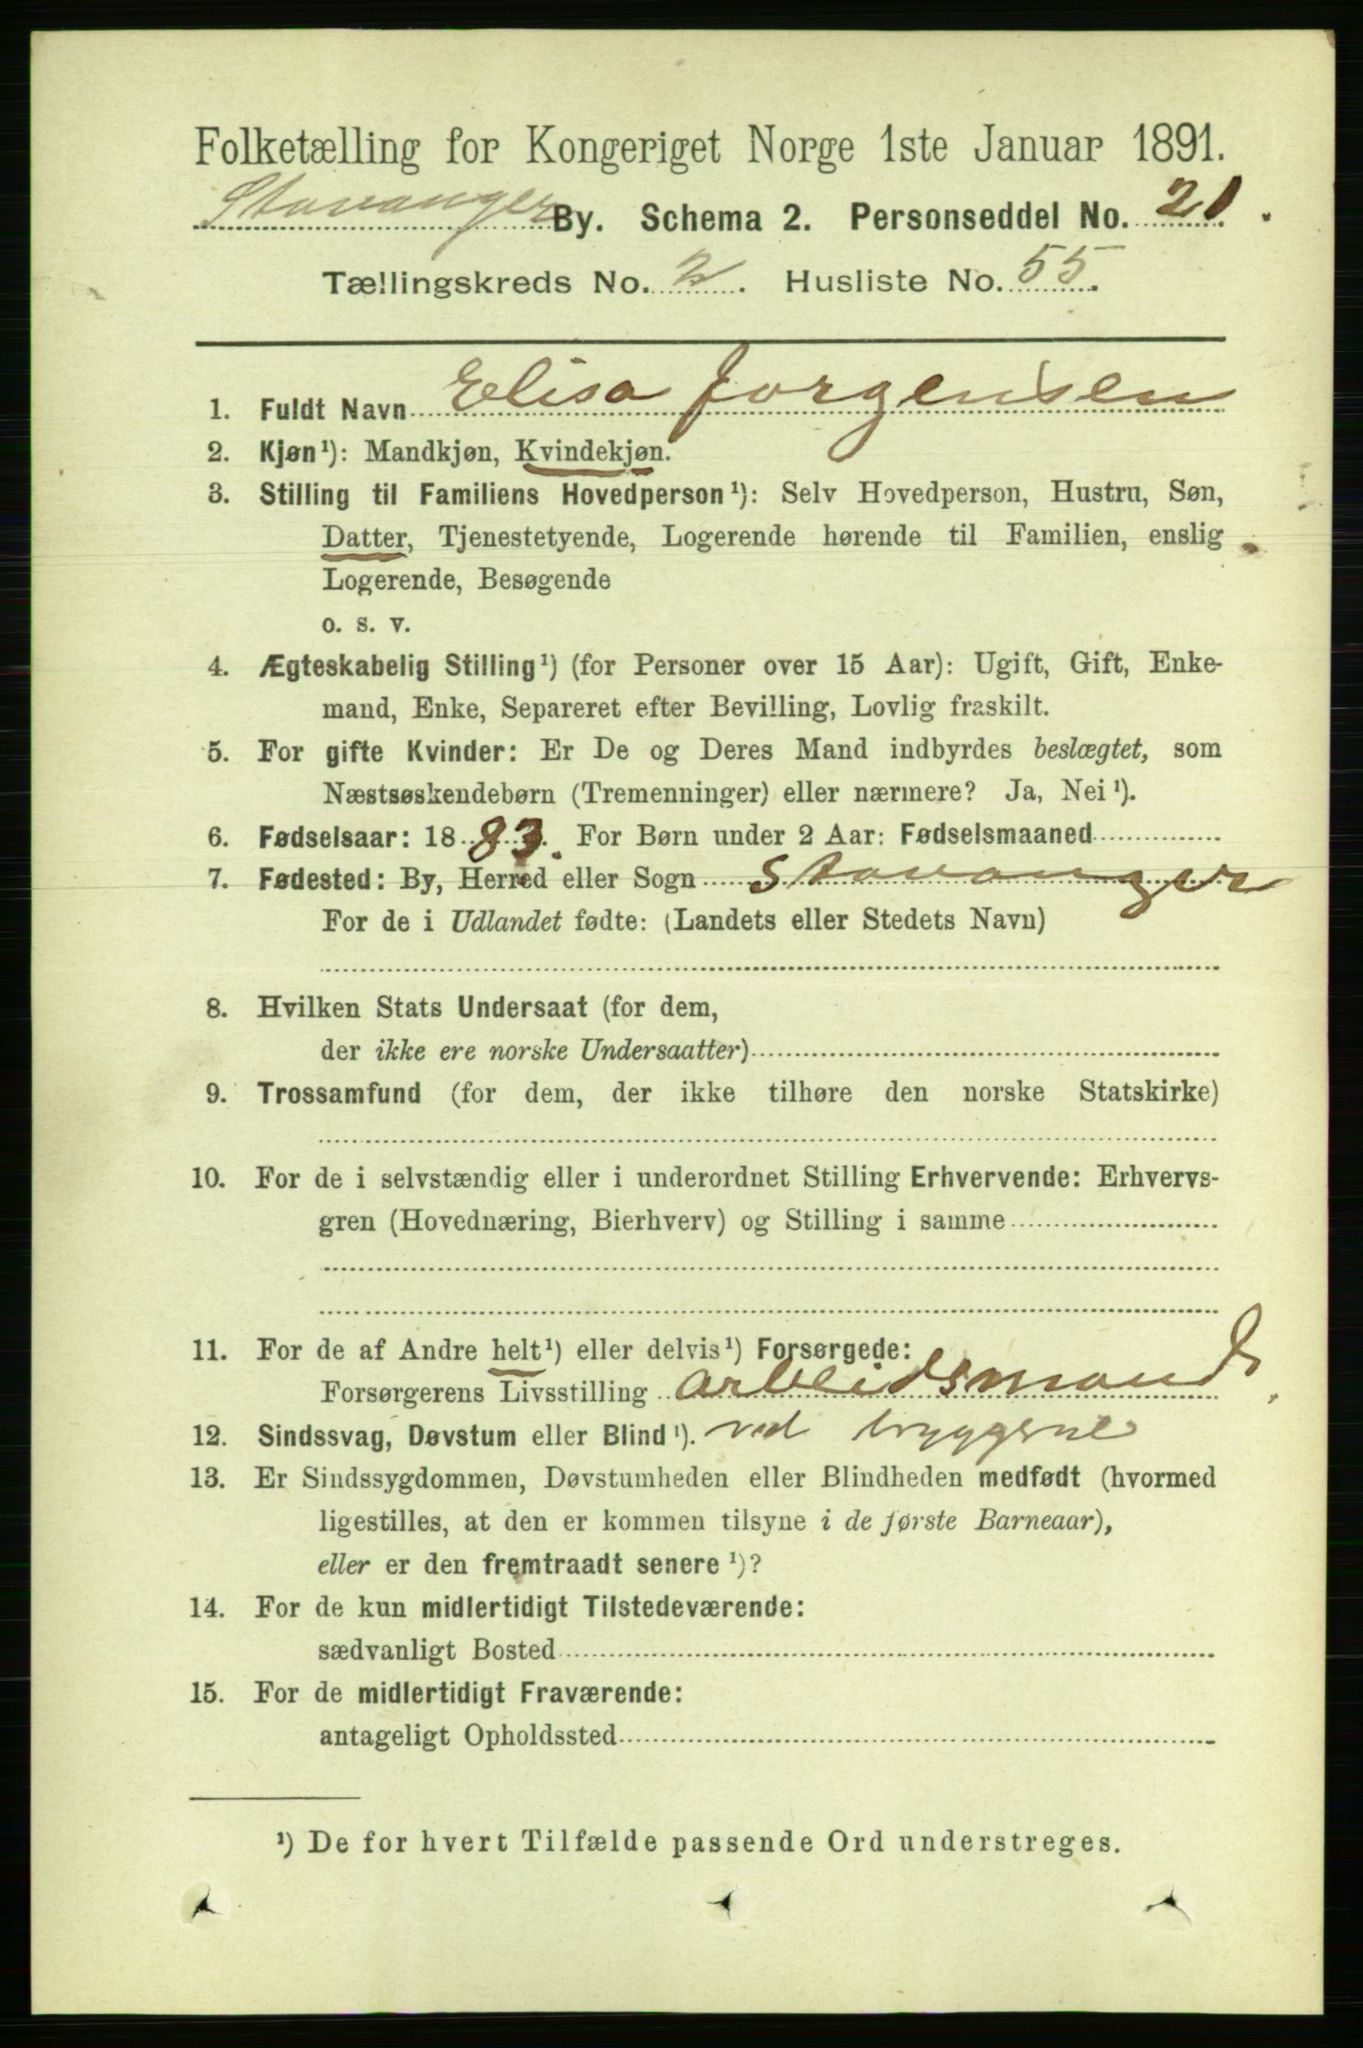 Folketælling for Kongeriget Norge 1ste Januar 1891.
Stavanger By. Schema 2. Personseddel No. 21.
Tællingskreds No. 2. Husliste No. 55.
1. Fuldt Navn Elisa Jorgensen
2. Kjøn¹): Mandkjøn, Kvindekjøn.
3. Stilling til Familiens Hovedperson¹): Selv Hovedperson, Hustru, Søn,
Datter, Tjenestetyende, Logerende hørende til Familien, enslig
Logerende, Besøgende
o. s. v.
4. Ægteskabelig Stilling¹) (for Personer over 15 Aar): Ugift, Gift, Enke-
mand, Enke, Separeret efter Bevilling, Lovlig fraskilt.
5. For gifte Kvinder: Er De og Deres Mand indbyrdes beslægtet, som
Næstsøskendebørn (Tremenninger) eller nærmere? Ja, Nei¹).
6. Fødselsaar: 1883. For Børn under 2 Aar: Fødselsmaaned
7. Fødested: By, Herred eller Sogn Stavanger
For de i Udlandet fødte: (Landets eller Stedets Navn)
8. Hvilken Stats Undersaat (for dem,
der ikke ere norske Undersaatter)
9. Trossamfund (for dem, der ikke tilhøre den norske Statskirke)
10. For de i selvstændig eller i underordnet Stilling Erhvervende: Erhvervs-
gren (Hovednæring, Bierhverv) og Stilling i samme
11. For de af Andre helt¹) eller delvis¹) Forsørgede:
Forsørgerens Livsstilling arbeidsmand
12. Sindssvag, Døvstum eller Blind¹). ved bryggerne
13. Er Sindssygdommen, Døvstumheden eller Blindheden medfødt (hvormed
ligestilles, at den er kommen tilsyne i de første Barneaar),
eller er den fremtraadt senere¹)?
14. For de kun midlertidigt Tilstedeværende:
sædvanligt Bosted
15. For de midlertidigt Fraværende:
antageligt Opholdssted
¹) De for hvert Tilfælde passende Ord understreges.